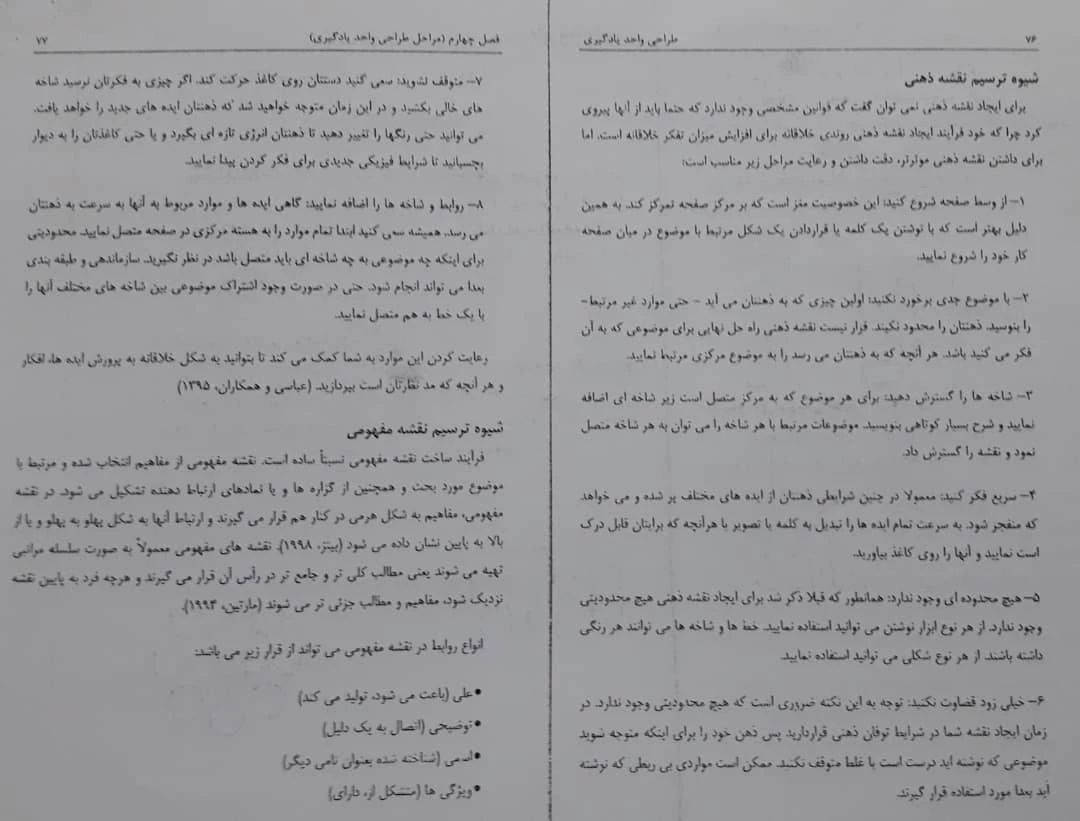 ۷۶
طراحی واحد یادگیری
شیوه ترسیم نقشه ذهنی
برای ایجاد نقشه ذهنی نمی توان گفت که قوانین مشخصی وجود ندارد که حتما باید از آنها پیروی
کرد چرا که خود فرآیند ایجاد نقشه ذهنی روندی خلاقانه برای افزایش میزان تفکر خلاقانه است. اما
برای داشتن نقشه ذهنی موثرتر، دقت داشتن و رعایت مراحل زیر مناسب است:
۱- از وسط صفحه شروع کنید: این خصوصیت مغز است که بر مرکز صفحه تمرکز کند. به همین
دلیل بهتر است که با نوشتن یک کلمه یا قراردادن یک شکل مرتبط با موضوع در میان صفحه
کار خود را شروع نمایید.
۲- با موضوع جدی برخورد نکنید: اولین چیزی که به ذهنتان می آید - حتی موارد غیر مرتبط-
را بنوسید. ذهنتان را محدود نکیند. قرار نیست نقشه ذهنی راه حل نهایی برای موضوعی که به آن
فکر می کنید باشد. هر آنچه که به ذهنتان می رسد را به موضوع مرکزی مرتبط نمایید.
۳- شاخه ها را گسترش دهید: برای هر موضوع که به مرکز متصل است زیر شاخه ای اضافه
نمایید و شرح بسیار کوتاهی بنویسید. موضوعات مرتبط با هر شاخه را می توان به هر شاخه متصل
نمود و نقشه را گسترش داد.
۴- سریع فکر کنید: معمولا در چنین شرایطی ذهنتان از ایده های مختلف پر شده و می خواهد
که منفجر شود. به سرعت تمام ایده ها را تبدیل به کلمه یا تصویر یا هرآنچه که برایتان قابل درک
است نمایید و آنها را روی کاغذ بیاورید.
۵- هیچ محدوده ای وجود ندارد: همانطور که قبلا ذکر شد برای ایجاد نقشه ذهنی هیچ محدودیتی
وجود ندارد. از هر نوع ابزار نوشتن می توانید استفاده نمایید. خط ها و شاخه ها می توانند هر رنگی
داشته باشند. از هر نوع شکلی می توانید استفاده نمایید.
۶- خیلی زود قضاوت نکنید: توجه به این نکته ضروری است که هیچ محدودیتی وجود ندارد. در
زمان ایجاد نقشه شما در شرایط توفان ذهنی قراردارید پس ذهن خود را برای اینکه متوجه شوید
موضوعی که نوشته اید درست است یا غلط متوقف نکنید. ممکن است مواردی بی ربطی که نوشته
آید بعداً مورد استفاده قرار گیرند.
فصل چهارم (مراحل طراحی واحد یادگیری)
۷۷
۷- متوقف نشوید: سعی کنید دستتان روی کاغذ حرکت کند. اگر چیزی به فکرتان نرسید شاخه
های خالی بکشید و در این زمان متوجه خواهید شد که ذهنتان ایده های جدید را خواهد یافت.
می توانید حتی رنگها را تغییر دهید تا ذهنتان انرژی تازه ای بگیرد و یا حتی کاغذتان را به دیوار
بچسبانید تا شرایط فیزیکی جدیدی برای فکر کردن پیدا نمایید.
۸- روابط و شاخه ها را اضافه نمایید: گاهی ایده ها و موارد مربوط به آنها به سرعت به ذهنتان
می رسد. همیشه سعی کنید ابتدا تمام موارد را به هسته مرکزی در صفحه متصل نمایید. محدودیتی
برای اینکه چه موضوعی به چه شاخه ای باید متصل باشد در نظر نگیرید. سازماندهی و طبقه بندی
بعدا می تواند انجام شود. حتی در صورت وجود اشتراک موضوعی بین شاخه های مختلف آنها را
با یک خط به هم متصل نمایید.
رعایت کردن این موارد به شما کمک می کند تا بتوانید به شکل خلاقانه به پرورش ایده ها، افکار
و هر آنچه که مد نظرتان است بپردازید. (عباسی و همکاران، ۱۳۹۵)
شیوه ترسیم نقشه مفهومی
فرآیند ساخت نقشه مفهومی نسبتاً ساده است. نقشه مفهومی از مفاهیم انتخاب شده و مرتبط با
موضوع مورد بحث و همچنین از گزاره ها و یا نمادهای ارتباط دهنده تشکیل می شود. در نقشه
مفهومی، مفاهیم به شکل هرمی در کنار هم قرار می گیرند و ارتباط آنها به شکل پهلو به پهلو و یا از
بالا به پایین نشان داده می شود (بینز، ۱۹۹۸). نقشه های مفهومی معمولاً به صورت سلسله مراتبی
تهیه می شوند یعنی مطالب کلی تر و جامع تر در رأس آن قرار می گیرند و هرچه فرد به پایین نقشه
نزدیک شود، مفاهیم و مطالب جزئی تر می شوند (مارتین، ۱۹۹۴).
انواع روابط در نقشه مفهومی می تواند از قرار زیر می باشد:
●علی (باعث می شود، تولید می کند)
●توضیحی (اتصال به یک دلیل)
●اسمی (شناخته شده بعنوان نامی دیگر)
●ویژگی ها (متشکل از، دارای)